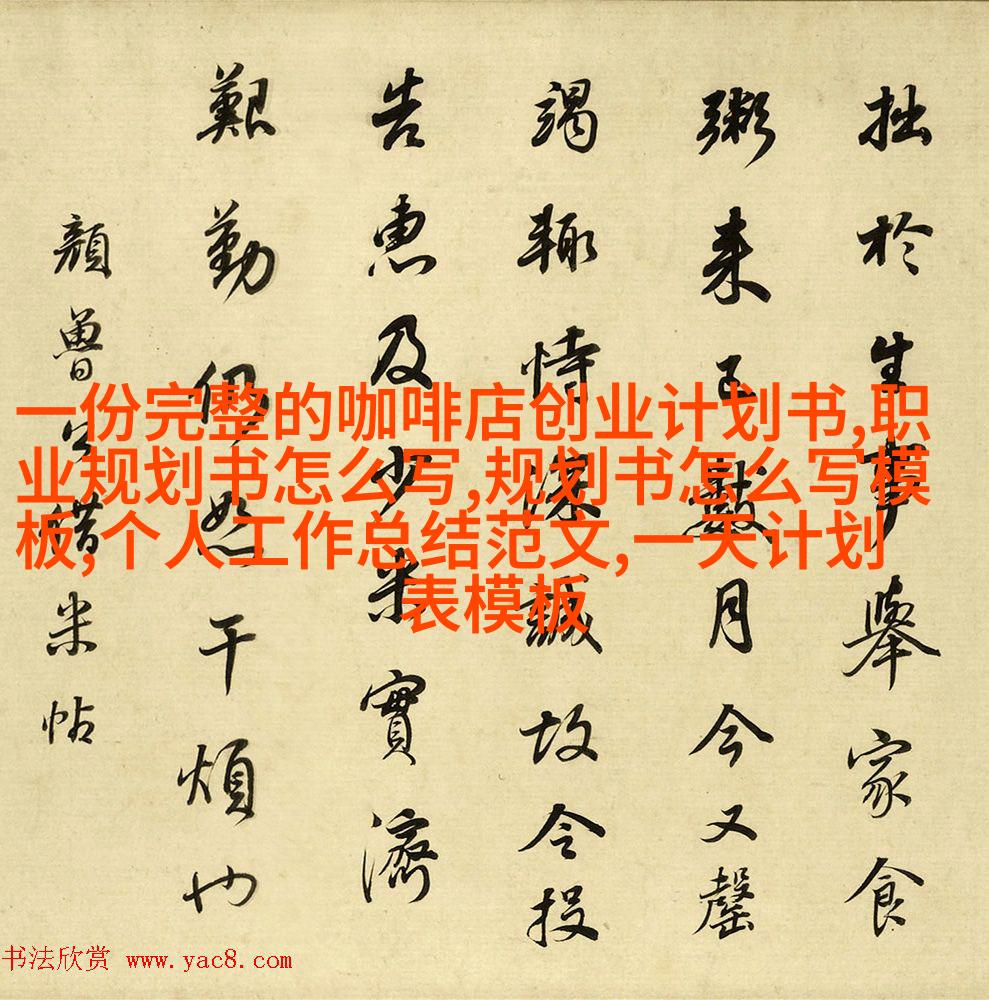 拙於生事舉家食
粥来已數月今又罄
竭輒恃深誠故令投
告惠及少米實濟
艱勤仍恕干煩也
顔魯公借米帖
一份完整的咖啡店创业计划书,职
业规划书怎么写,规划书怎么写模
板,个人工作总结范文,一天计划
表模板
书法欣赏 www.yac8.com